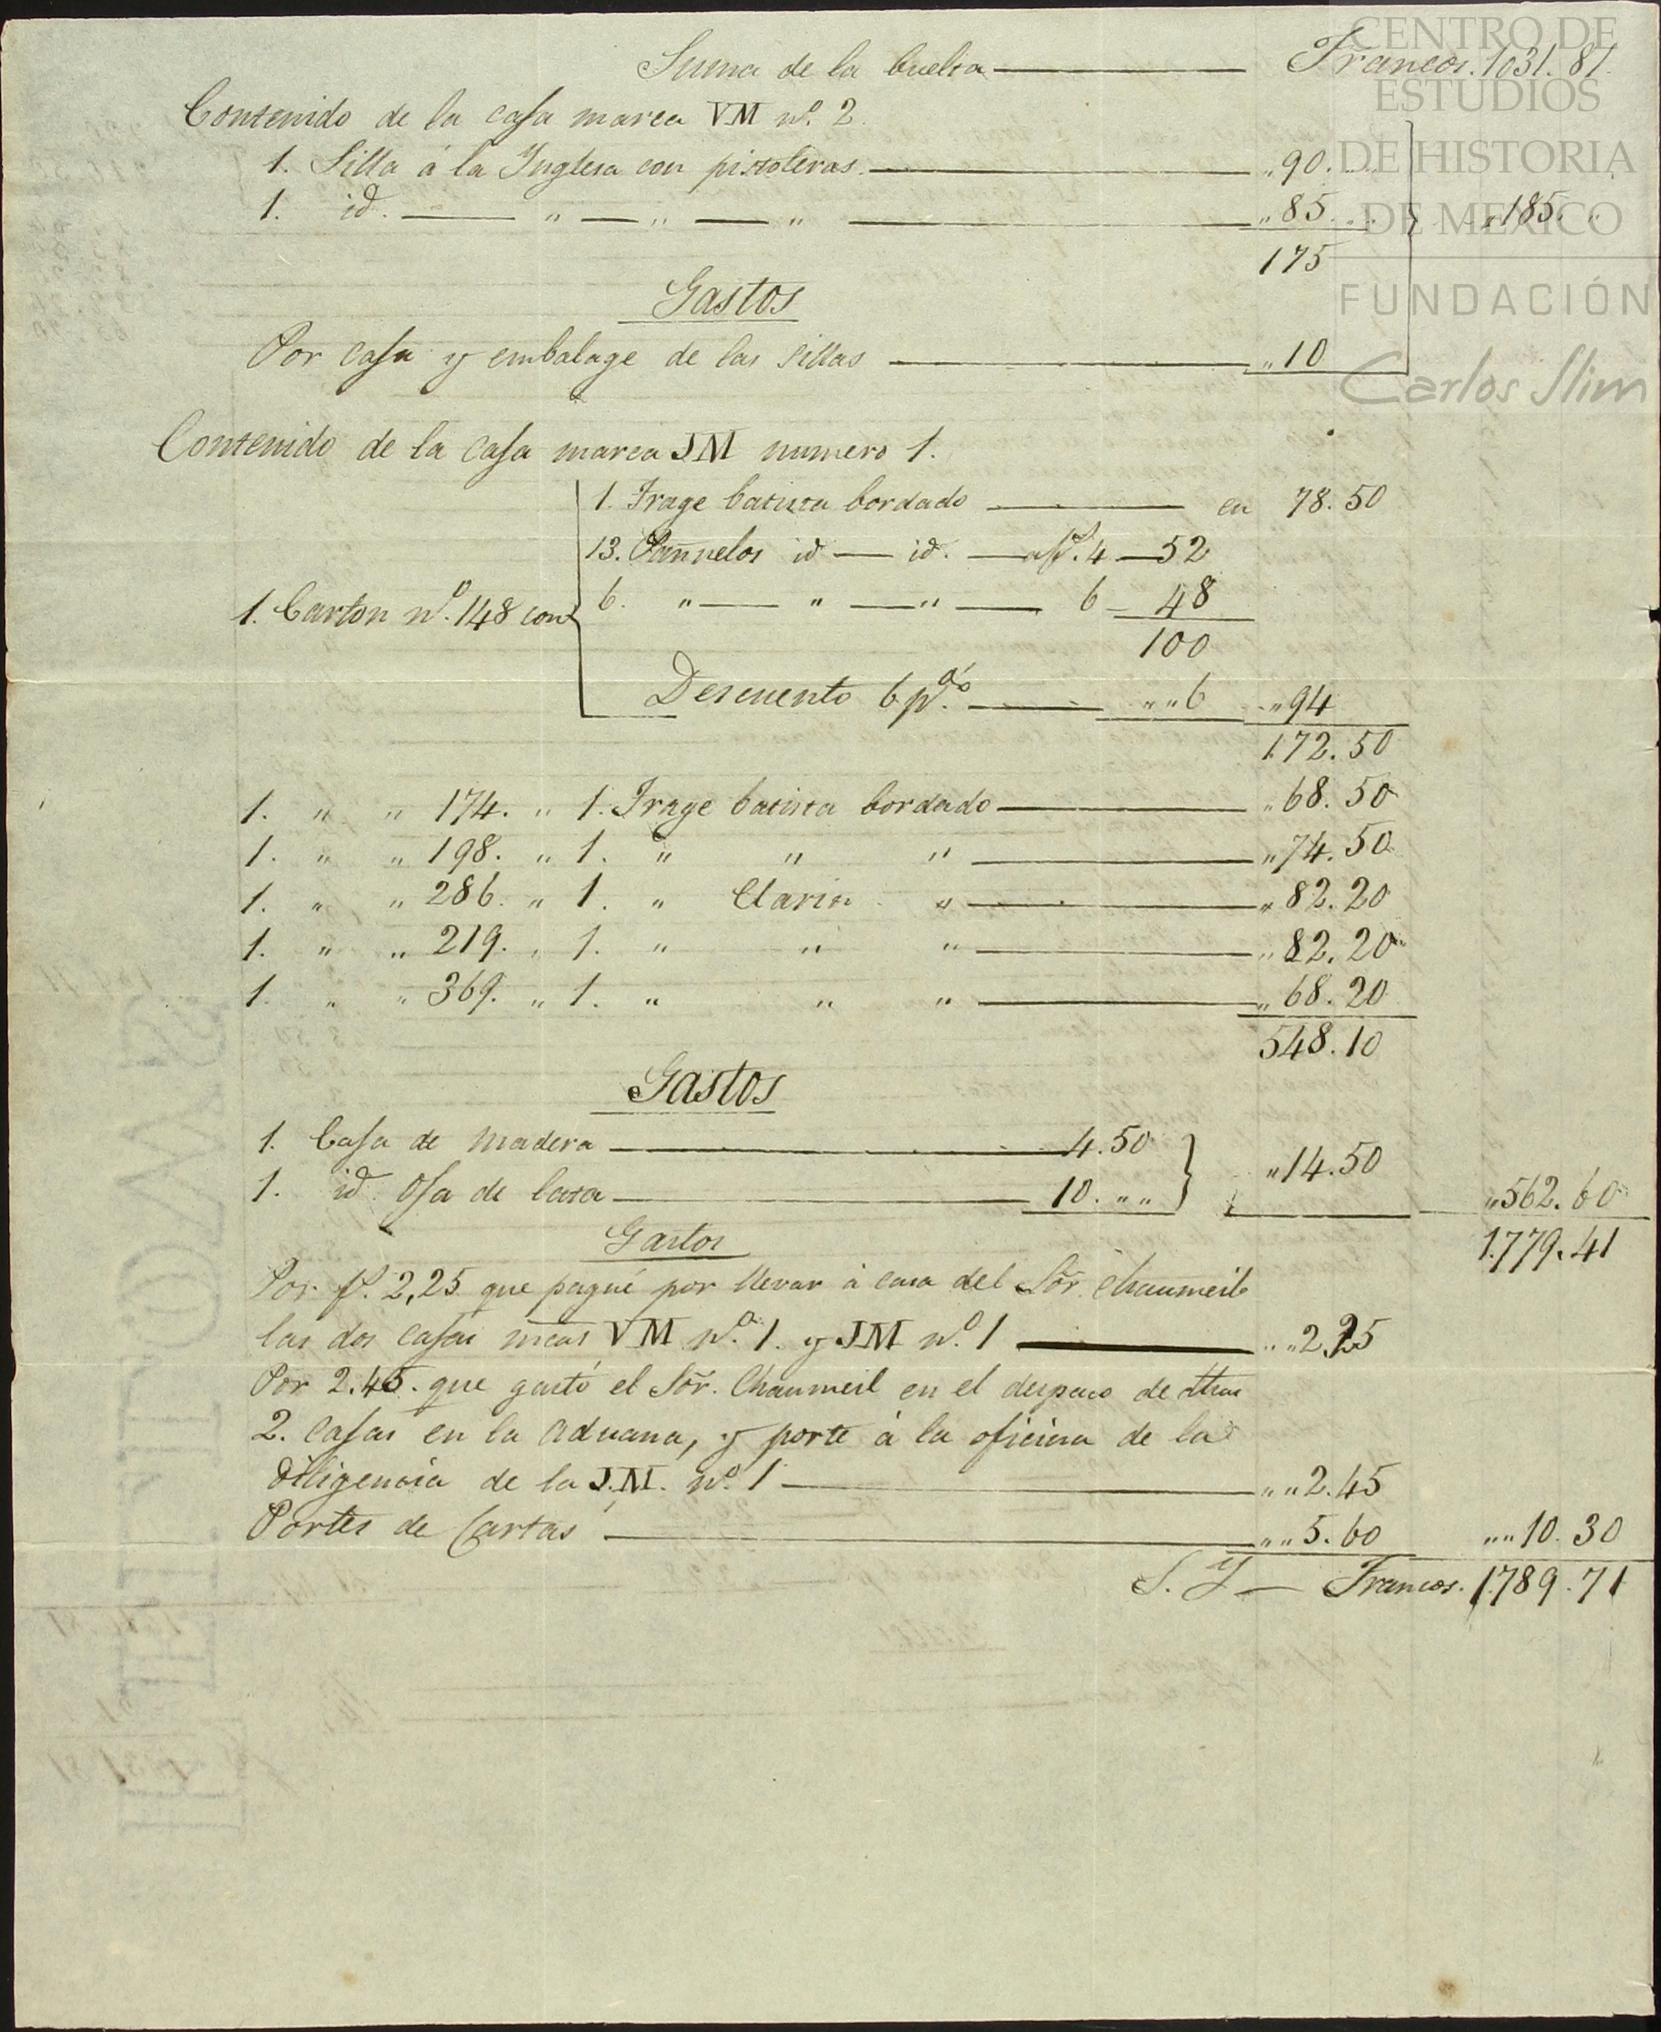 Suma de la buelta Francos. 1031. 81.
Contenido de la casa marca VM nº. 2.
1. Silla á la Inglesa con pistoleras. „ 90. „
1. id. „ „ „ „ 85. „ „ 185. „
175
Gastos
Por casa y embalage de las sillas „ 10
Contenido de la casa marca JM numero 1.
1. Trage batista bordado en 78. 50
13. Pañuelos id id. a f. 4 52
1. Carton nº. 148 con 6. „ „ „ 6 48
100
Descuento 6 p%. „ „ 6 „ 94
172. 50
1. „ „ 174. „ 1. Trage batista bordado „ 68. 50
1. „ „ 198. „ 1. „ „ „ „ 74. 50
1. „ „ 286. „ 1. „ Clarin „ „ 82. 20
1. „ „ 219. „ 1. „ „ „ „ 82. 20
1. „ „ 369. „ 1. „ „ „ „ 68. 20
548. 10
Gastos
1. Casa de madera 4. 50
„ 14. 50
1. id. Osa de lata 10. „ „ „ 562. 60
Gastos 1.779. 41
Por f. 2,25 que pagué por llevar á casa del Sõr. Chaumeil
las dos casas mcas VM nº. 1. y JM nº. 1 „ „ 2.25
Por 2.45. que gastó el Sõr. Chaumeil en el despaco de dhas
2. casas en la aduana, y porte á la oficina de la
diligencia de la J.M. nº 1 „ „ 2. 45
Portes de Cartas „ „ 5. 60 „ „ 10. 30
S. Y Francos. 1.789. 71
CENTRO DE
ESTUDIOS
DE HISTORIA
DE MEXICO
FUNDACIÓN
Carlos Slim